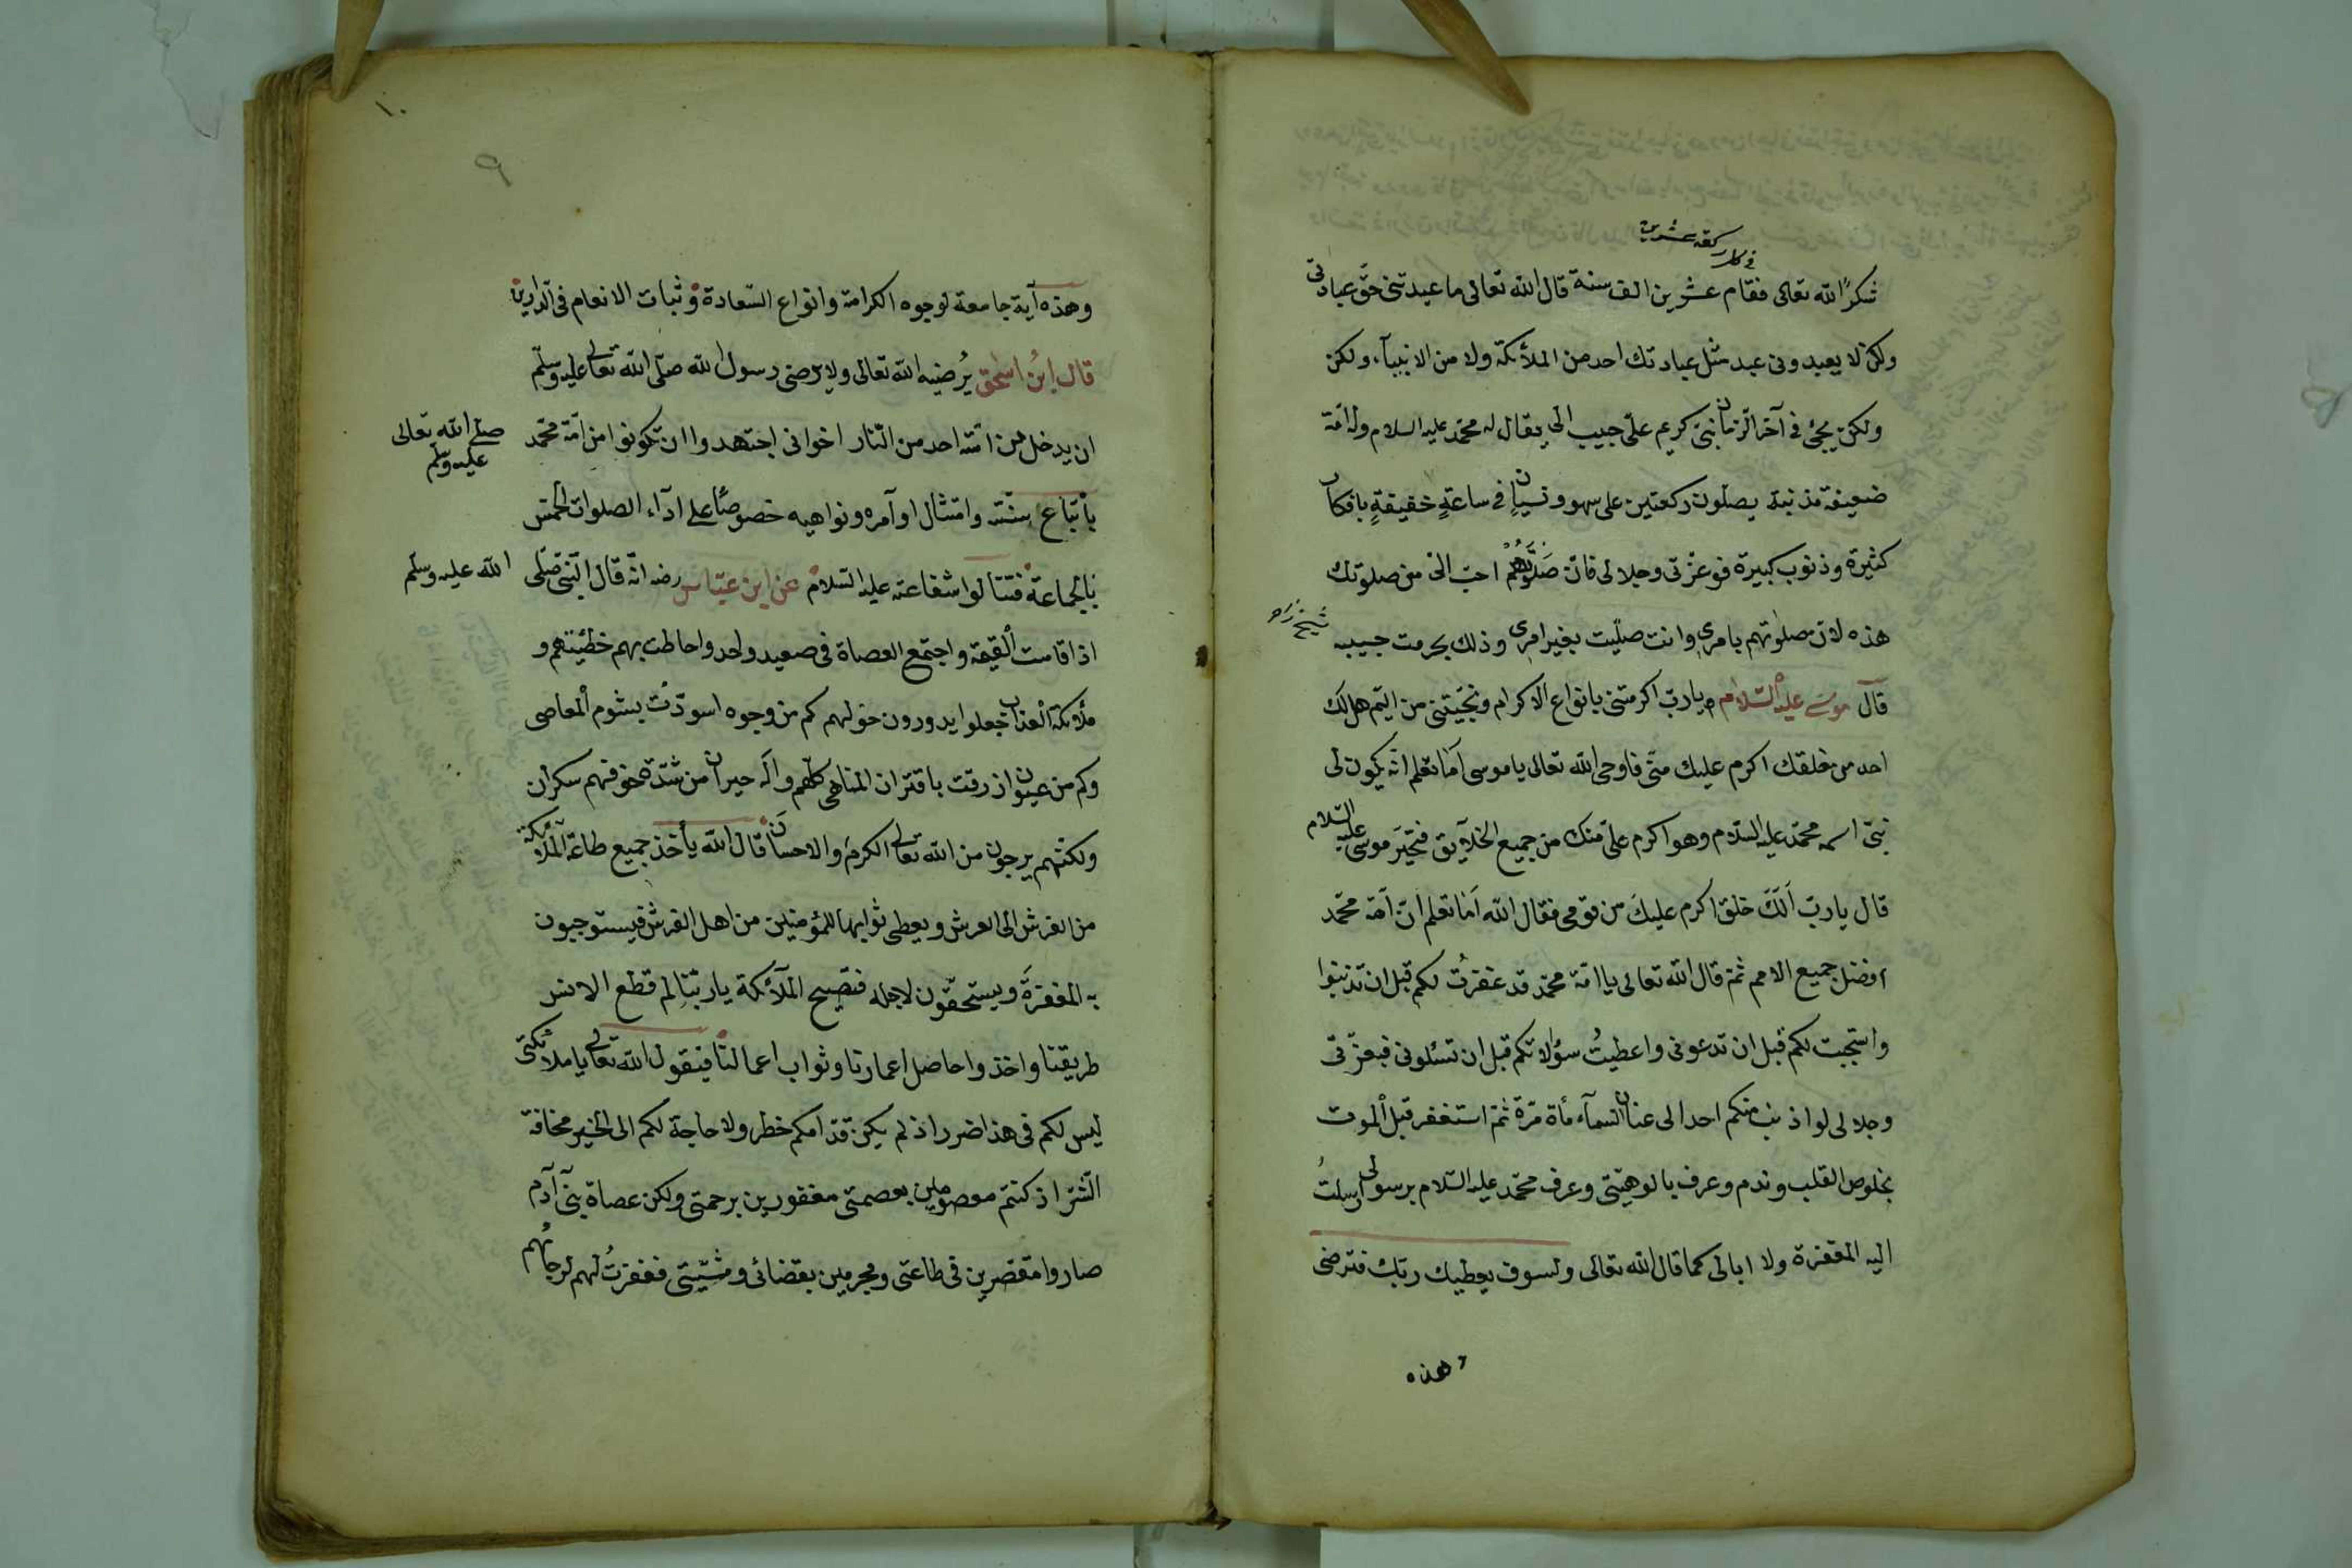 في كل ركعة عشرين
شكرًا لله تعالى فقام عشرين الف سنة قال الله تعالى ما عبدتنى حقّ عبادتى
ولكن لا يعبدونى عبد مثل عبادتك احد من الملائكة ولا من الانبيآء ولكن
ولكن يجئ فى آخر الزمان نبىّ كريم علىّ حبيب الىّ يقال له محمّد عليه السلام وله امّة
ضعيفة مذنبة يصلّون ركعتين على سهو ونسيان فى ساعةٍ خفيفةٍ بافكار
كثيرة وذنوب كبيرة فوعزّتى وجلالى فانّ صلوتهم احبّ الىّ من صلوتك
هذه لانّ صلوتهم بامرى وانت صلّيت بغير امرى وذلك بحرمت حبيبه
شيخ زاده
قال موسى عليه السّلام يا ربّ اكرمتنى بانواع الاكرام ونجّيتنى من اليّم هل لك
احد من خلقك اكرم عليك منّى فاوحى الله تعالى يا موسى اَمَا تعلم انّه يكون لى
نبىّ اسمه محمّد عليه السّلام وهو اكرم علىّ منك من جميع الخلآيق فتحيّر موسى عليه السّلام
قال يا ربّ اَلَكَ خلق اكرم عليكَ من قومى فقال الله اَمَا تعلم انّ امّة محمّد
افضل جميع الامم ثمّ قال الله تعالى يا امّة محمّد قد غفرتُ لكم قبل ان تذنبوا
واستجبت لكم قبل ان تدعونى واعطيتُ سؤالاتكم قبل ان تسئلونى فبعزّتى
وجلالى لو اذنب منكم احد الى عنان السّمآء مأة مرّة ثمّ استغفر قبل الموت
بخلوص القلب وندم وعرف بالوهيّتى وعرف محمّد عليه السّلام برسولى ارسلتُ
اليه المغفرة ولا ابالى كما قال الله تعالى ولسوف يعطيك ربّك فترضى
وهذه
١٠
٩
وهذه آية جامعة لوجوه الكرامة وانواع السّعادة وثبات الانعام فى الدّارين
قال ابن اسحق يُرضيه الله تعالى ولا يرضى رسول الله صلّى الله تعالى عليه وسلّم
ان يدخل من امّته احد من النّار اخوانى اجتهدوا ان تكونوا من امّة محمّد صلى الله تعالى عليه وسلّم
باتّباع سنّته وامتثال اوآمره ونواهيه خصوصًا على ادآء الصلوات الخمس
بالجماعة فتنالوا شفاعته عليه السّلام عن ابن عبّاس رضه انّه قال النّبىّ صلّى الله عليه وسلّم
اذا قامت القيمة واجتمع العصاة فى صعيد واحد واحاطت بهم خطيئتهم و
ملائكة العذاب جعلوا يدورون حولهم كم من وجوه اسودّت بشوم المعاصى
وكم من عيون ازرقت باقتران المناهى كلّهم واله حيران من شدّة خوفهم سكران
ولكنّهم يرجون من الله تعالى الكرم والاحسان قال الله يأخذ جميع طاعة الملائكة
من الفرش الى العرش ويعطى ثوابها للمؤمنين من اهل الفرش فيستوجبون
به المغفرةَ ويستحقّون لاجله فتصيح الملآئكة يا ربّنا لم قطع الانس
طريقنا واخذوا حاصل اعمارنا وثواب اعمالنا فيقول الله تعالى يا ملائكتى
ليس لكم فى هذا ضرر اذ لم يكن قدّامكم خطر ولا حاجة لكم الى الخير مخافة
الشّرّ اذ كنتم معصومين بعصمتى مغفورين برحمتى ولكن عصاة بنى آدم
صاروا مقصّرين فى طاعتى ومجرمين بقضائى ومشيّتى فغفرتُ لهم لرجائهم